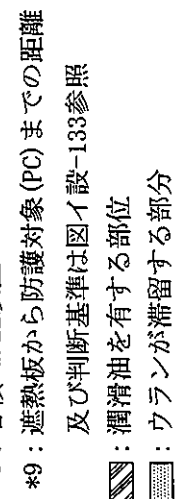 *9：遮熱板から防護対象(PC)までの距離
及び判断基準は図イ設-133参照
：潤滑油を有する部位
：ウランが滞留する部分